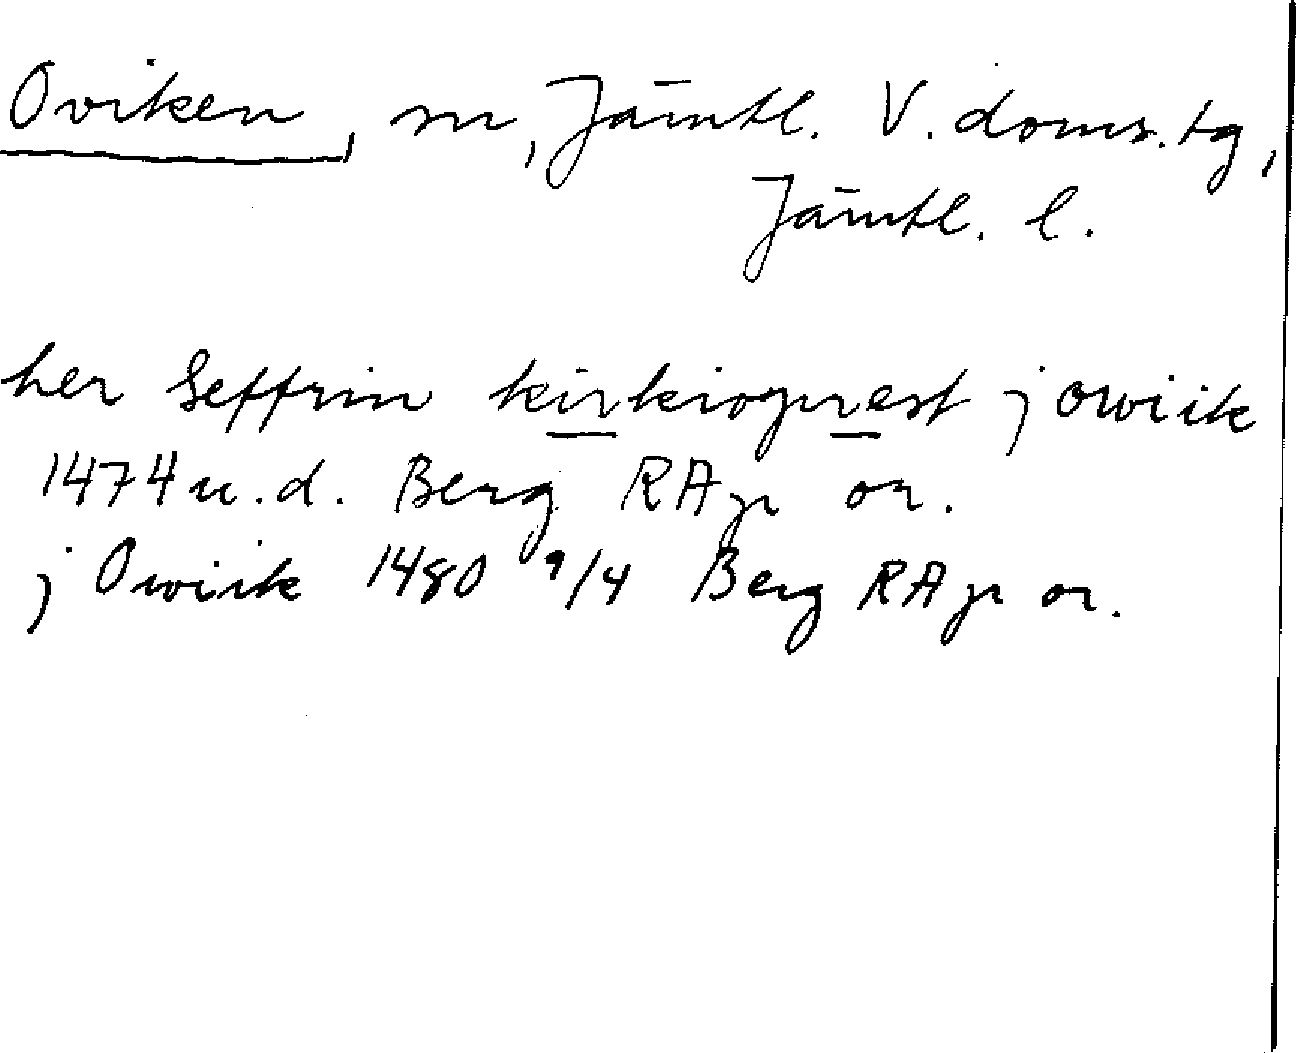 Oviken, sn, Jämtl. V. doms.tg,
Jämtl. l.
her Seffrin kirkiogprest j owiik
1474 u.d. Berg RAp or.
j Owiik 1480 9/4 Berg RAp or.